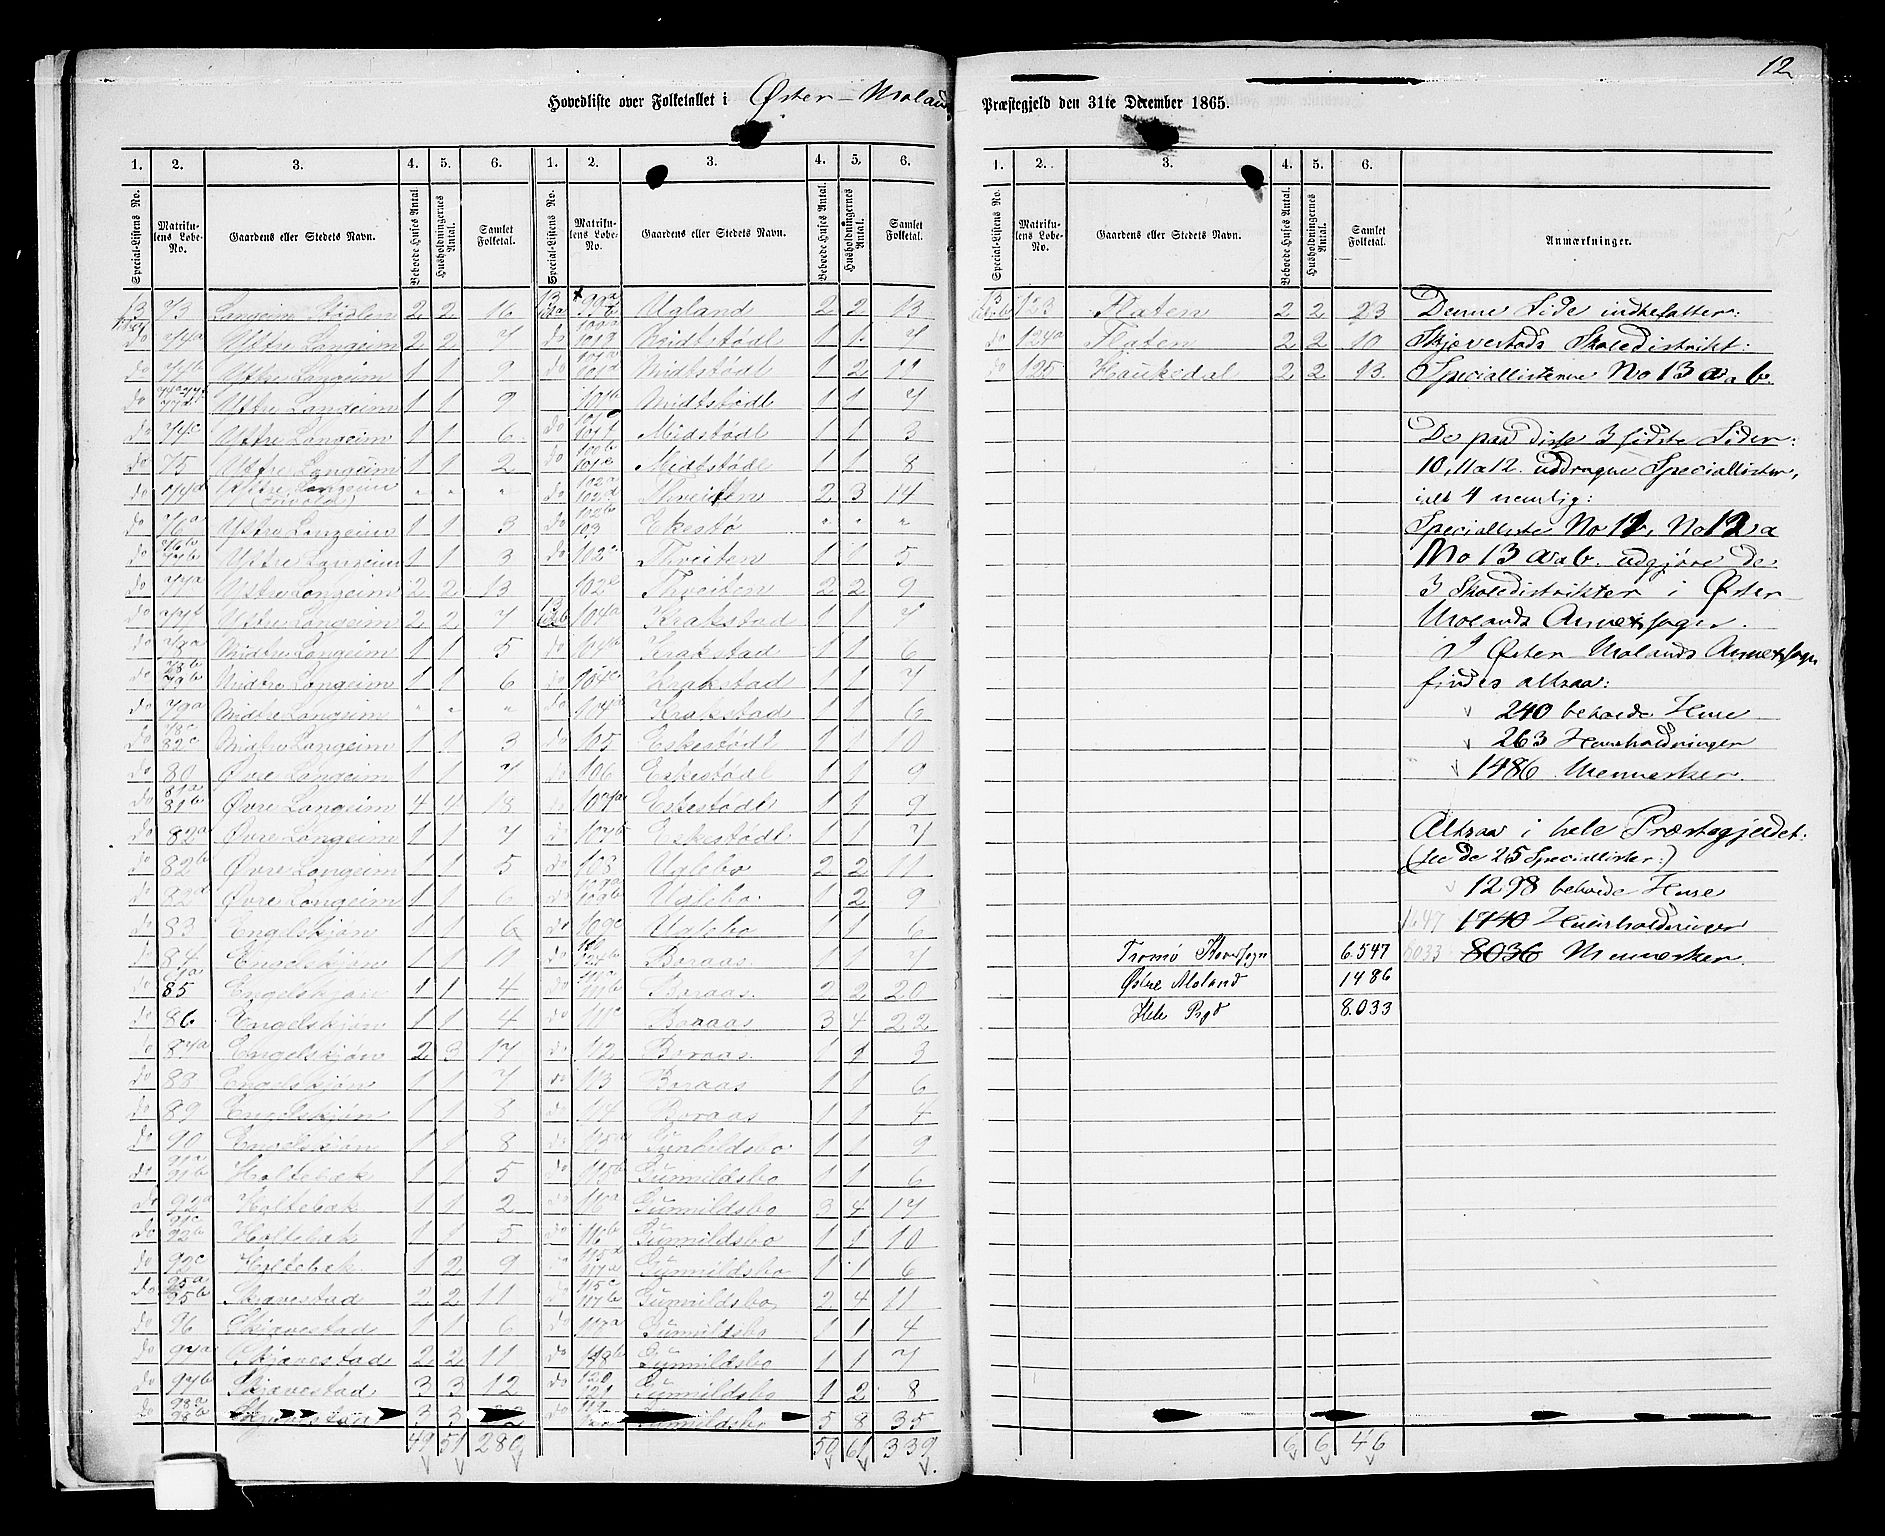 12
Hovedliste over Folketallet i Øster-Moland
Præstegjeld den 31te December 1865.
1. 2. 3. 4. 5. 6. 1. 2. 3. 4. 5. 6.
Special-Listens No. Matrikulens Løbe-No. Gaardens eller Stedets Navn. Beboede Huses Antal. Husholdningernes Antal. Samlet Folketal. Special-Listens No. Matrikulens Løbe-No. Gaardens eller Stedets Navn. Beboede Huses Antal. Husholdningernes Antal. Samlet Folketal.
73 Langeim Stødlem 2 2 16 Ugland 2 2 13
do 74a Yttre Langeim 2 2 7 do Midtstødl 1 1 7
do 74b Yttre Langeim 1 1 9 do Midtstødl 1 2 11
do Yttre Langeim 1 1 9 101b Midtstødl 1 1 7
do 74c Yttre Langeim 1 1 6 do Midstødl 1 1 3
do 75 Yttre Langeim 1 1 2 do Midtstødl 1 1 8
do 74d Yttre Langeim " " " do 102a 102d Thveiten 2 3 14
do 76a Yttre Langeim 1 1 3 do 102b 103 Ekestø " " "
do Yttre Langeim 1 1 3 do 102c Thveiten 1 1 5
do 77a Yttre Langeim 2 2 13 102e Thveiten 2 2 9
do 77b Yttre Langeim 2 2 7 104a Krakstad 1 1 7
do Midtre Langeim 1 1 5 do 104b Krakstad 1 1 6
do 78b 79b Midtre Langeim 1 1 6 do 104c Krakstad 1 1 7
do 79a Midtre Langeim " " " do Krakstad 1 1 6
do 78c 82c Midtre Langeim 1 1 3 do 105 Eskestødl 1 1 10
do 80 Øvre Langeim 1 1 7 do 106 Eskestødl 1 1 9
do 81a 81b Øvre Langeim 4 4 18 107a Eskestødl 1 1 9
do 82a Øvre Langeim 1 1 7 107b Eskestødl 1 1 7
do 82b Øvre Langeim 1 1 5 do 108 Uglebo 2 2 11
do 82d Øvre Langeim 1 1 6 do 109b Uglebo 1 2 9
do 83 Engelskjøn 1 1 6 do 109c Uglebo 1 1 6
do 84 Engelskjøn 1 1 11 do Boraas 1 1 7
do 85 Engelskjøn 1 1 4 do 111b Boraas 2 2 20
do 86 Engelskjøn 1 1 4 do 111c Boraas 3 4 22
do 87a Engelskjøn 2 3 17 do 112 Boraas 1 1 3
do 88 Engelskjøn 1 1 7 do 113 Boraas 1 1 6
do 89 Engelskjøn 1 1 8 do 114 Boraas 1 1 4
do 90 Engelskjøn 1 1 8 do Gunnildsbo 1 1 9
do 91a 91b Holtebæk 1 1 5 do 115b Gunnildsbo 1 1 6
do 92a Holtebæk 1 1 2 do 116a Gunnildsbo 3 4 17
do 91c 92b Holtebæk 1 1 5 do 116b Gunnildsbo 1 1 10
do 92c Holtebæk 1 2 9 115d Gunnildsbo 1 1 6
do 95a 95b Skjævestad 2 2 11 do 115c 117b Gunnildsbo 2 4 11
do 96 Skjævestad 1 1 6 do 117a Gunnildsbo 1 1 4
do 97a Skjævestad 2 2 11 do Gunnildsbo 1 1 7
do 97b Skjævestad 3 3 12 do 120 121 Gunnildsbo 1 2 8
do 98a 98b Skjævestad 3 3 22 do Gunnildsbo 5 8 35
49 51 280 50 61 339
1. 2. 3. 4. 5. 6.
Special-Listens No. Matrikulens Løbe-No. Gaardens eller Stedets Navn. Beboede Huses Antal. Husholdningernes Antal. Samlet Folketal. Anmærkninger.
123 Flaten 2 2 23
do 124a Flaten 2 2 10
do 125 Haukedal 2 2 13
Tromø Hovedsogn 6.547
Østre Moland 1486
Hele Prgd 8.033
6 6 46
Denne Side indbefatter:
Skjævestads Skoledistrikt:
Speciallisterne No 13 a & b.
De paa disse 3 sidste Sider:
10, 11 & 12. uddragne Speciallister,
ialt 4 nemlig:
Specialliste No 11, No 12 &
No 13 a & b. udgjøre de
3 Skoledistrikter i Øster
Molands Annexsogn.
I Øster Molands Annexsogn
findes altsaa:
240 beboede Huse
263 Huusholdninger
1486 Mennesker.
Altsaa i hele Præstegjeldet:
(see de 25 Speciallister:)
1298 beboede Huse
1647 1740 Huusholdninger
8033 8036 Mennesker.